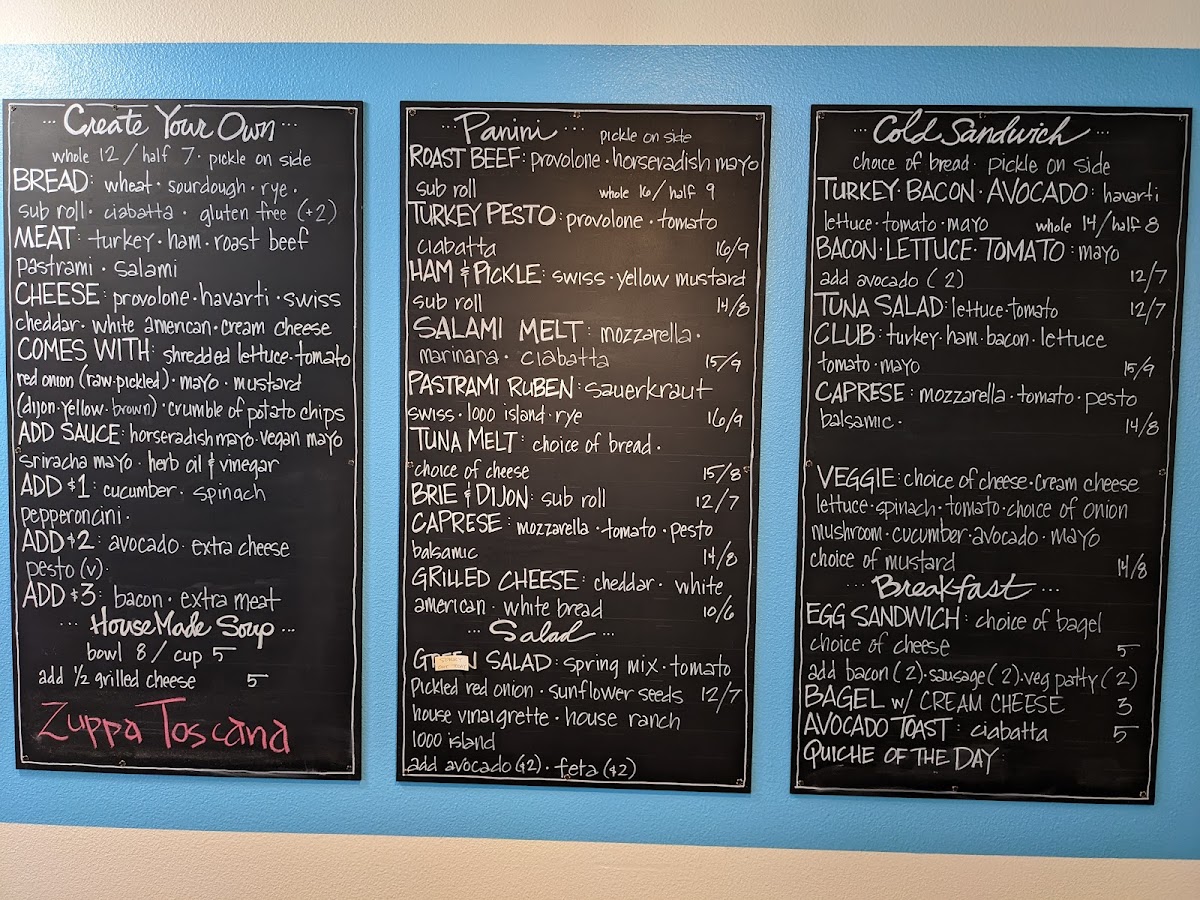 ··· Create Your Own ···
whole 12 / half 7 · pickle on side
BREAD: wheat · sourdough · rye ·
sub roll · ciabatta · gluten free (+2)
MEAT: turkey · ham · roast beef
pastrami · salami
CHEESE: provolone · havarti · swiss
cheddar · white american · cream cheese
COMES WITH: shredded lettuce · tomato
red onion (raw · pickled) · mayo · mustard
(dijon · yellow · brown) · crumble of potato chips
ADD SAUCE: horseradish mayo · vegan mayo
sriracha mayo · herb oil & vinegar
ADD $1: cucumber · spinach
pepperoncini ·
ADD $2: avocado · extra cheese
pesto (v) ·
ADD $3: bacon · extra meat
··· HouseMade Soup ···
bowl 8 / cup 5
add 1/2 grilled cheese 5
Zuppa Toscana
··· Panini ··· pickle on side
ROAST BEEF: provolone · horseradish mayo
sub roll whole 16 / half 9
TURKEY PESTO: provolone · tomato
ciabatta 16/9
HAM & PICKLE: swiss · yellow mustard
sub roll 14/8
SALAMI MELT: mozzarella ·
marinara · ciabatta 15/9
PASTRAMI RUBEN: sauerkraut
swiss · 1000 island · rye 16/9
TUNA MELT: choice of bread ·
choice of cheese 15/8
BRIE & DIJON: sub roll 12/7
CAPRESE: mozzarella · tomato · pesto
balsamic 14/8
GRILLED CHEESE: cheddar · white
american · white bread 10/6
··· Salad ···
GREEN SALAD: spring mix · tomato
pickled red onion · sunflower seeds 12/7
house vinaigrette · house ranch
1000 island
add avocado (+2) · feta (+2)
··· Cold Sandwich ···
choice of bread · pickle on side
TURKEY · BACON · AVOCADO: havarti
lettuce · tomato · mayo whole 14/half 8
BACON · LETTUCE · TOMATO: mayo
add avocado (2) 12/7
TUNA SALAD: lettuce · tomato 12/7
CLUB: turkey · ham · bacon · lettuce
tomato · mayo 15/9
CAPRESE: mozzarella · tomato · pesto
balsamic · 14/8
VEGGIE: choice of cheese · cream cheese
lettuce · spinach · tomato · choice of onion
mushroom · cucumber · avocado · mayo
choice of mustard 14/8
··· Breakfast ···
EGG SANDWICH: choice of bagel
choice of cheese 5
add bacon (2) · sausage (2) · veg patty (2)
BAGEL w/ CREAM CHEESE 3
AVOCADO TOAST: ciabatta 5
QUICHE OF THE DAY